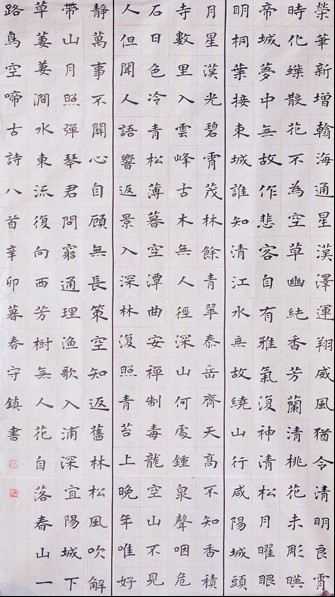 時華新增瀚海通星漢澤運翔威風猶令清明良宵
化蝶散花不為空草幽純香芳蘭清桃花未彫暎
帝城夢中無故作悲客自有雅氣復神清松月曜眼
明桐葉接東城誰知清江水無故繞山行咸陽城頭
月星漢光碧霄茂林餘青翠泰岳何齊天高不知香積
寺數里入雲峰古木無人徑深山何處鐘泉聲咽危
石日色冷青松薄暮空潭曲安禪制毒龍空山不見
人但聞人語響返景入深林復照青苔上晚年唯好
靜萬事不關心自顧無長策空知返舊林松風吹解
帶山月照彈琴君問窮通理漁歌入浦深宜陽城下
草萋萋澗水東流復向西芳樹無人花自落春山一
路鳥空啼古詩八首辛卯暮春守鎮書